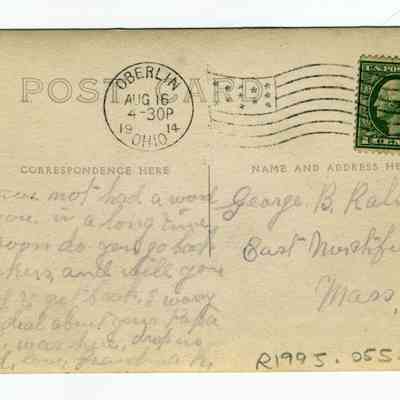 POST CARD
OBERLIN
AUG 16
4-30P
19 14
OHIO
U.S. POS
CORRESPONDENCE HERE
NAME AND ADDRESS HE
not had a word
in a long time
soon do you go back
and will you
get back, I worry
deal about your Papa
was here, drop us
love, Grandma
George B. Ral
East Northfi
Mass
R1995.055.